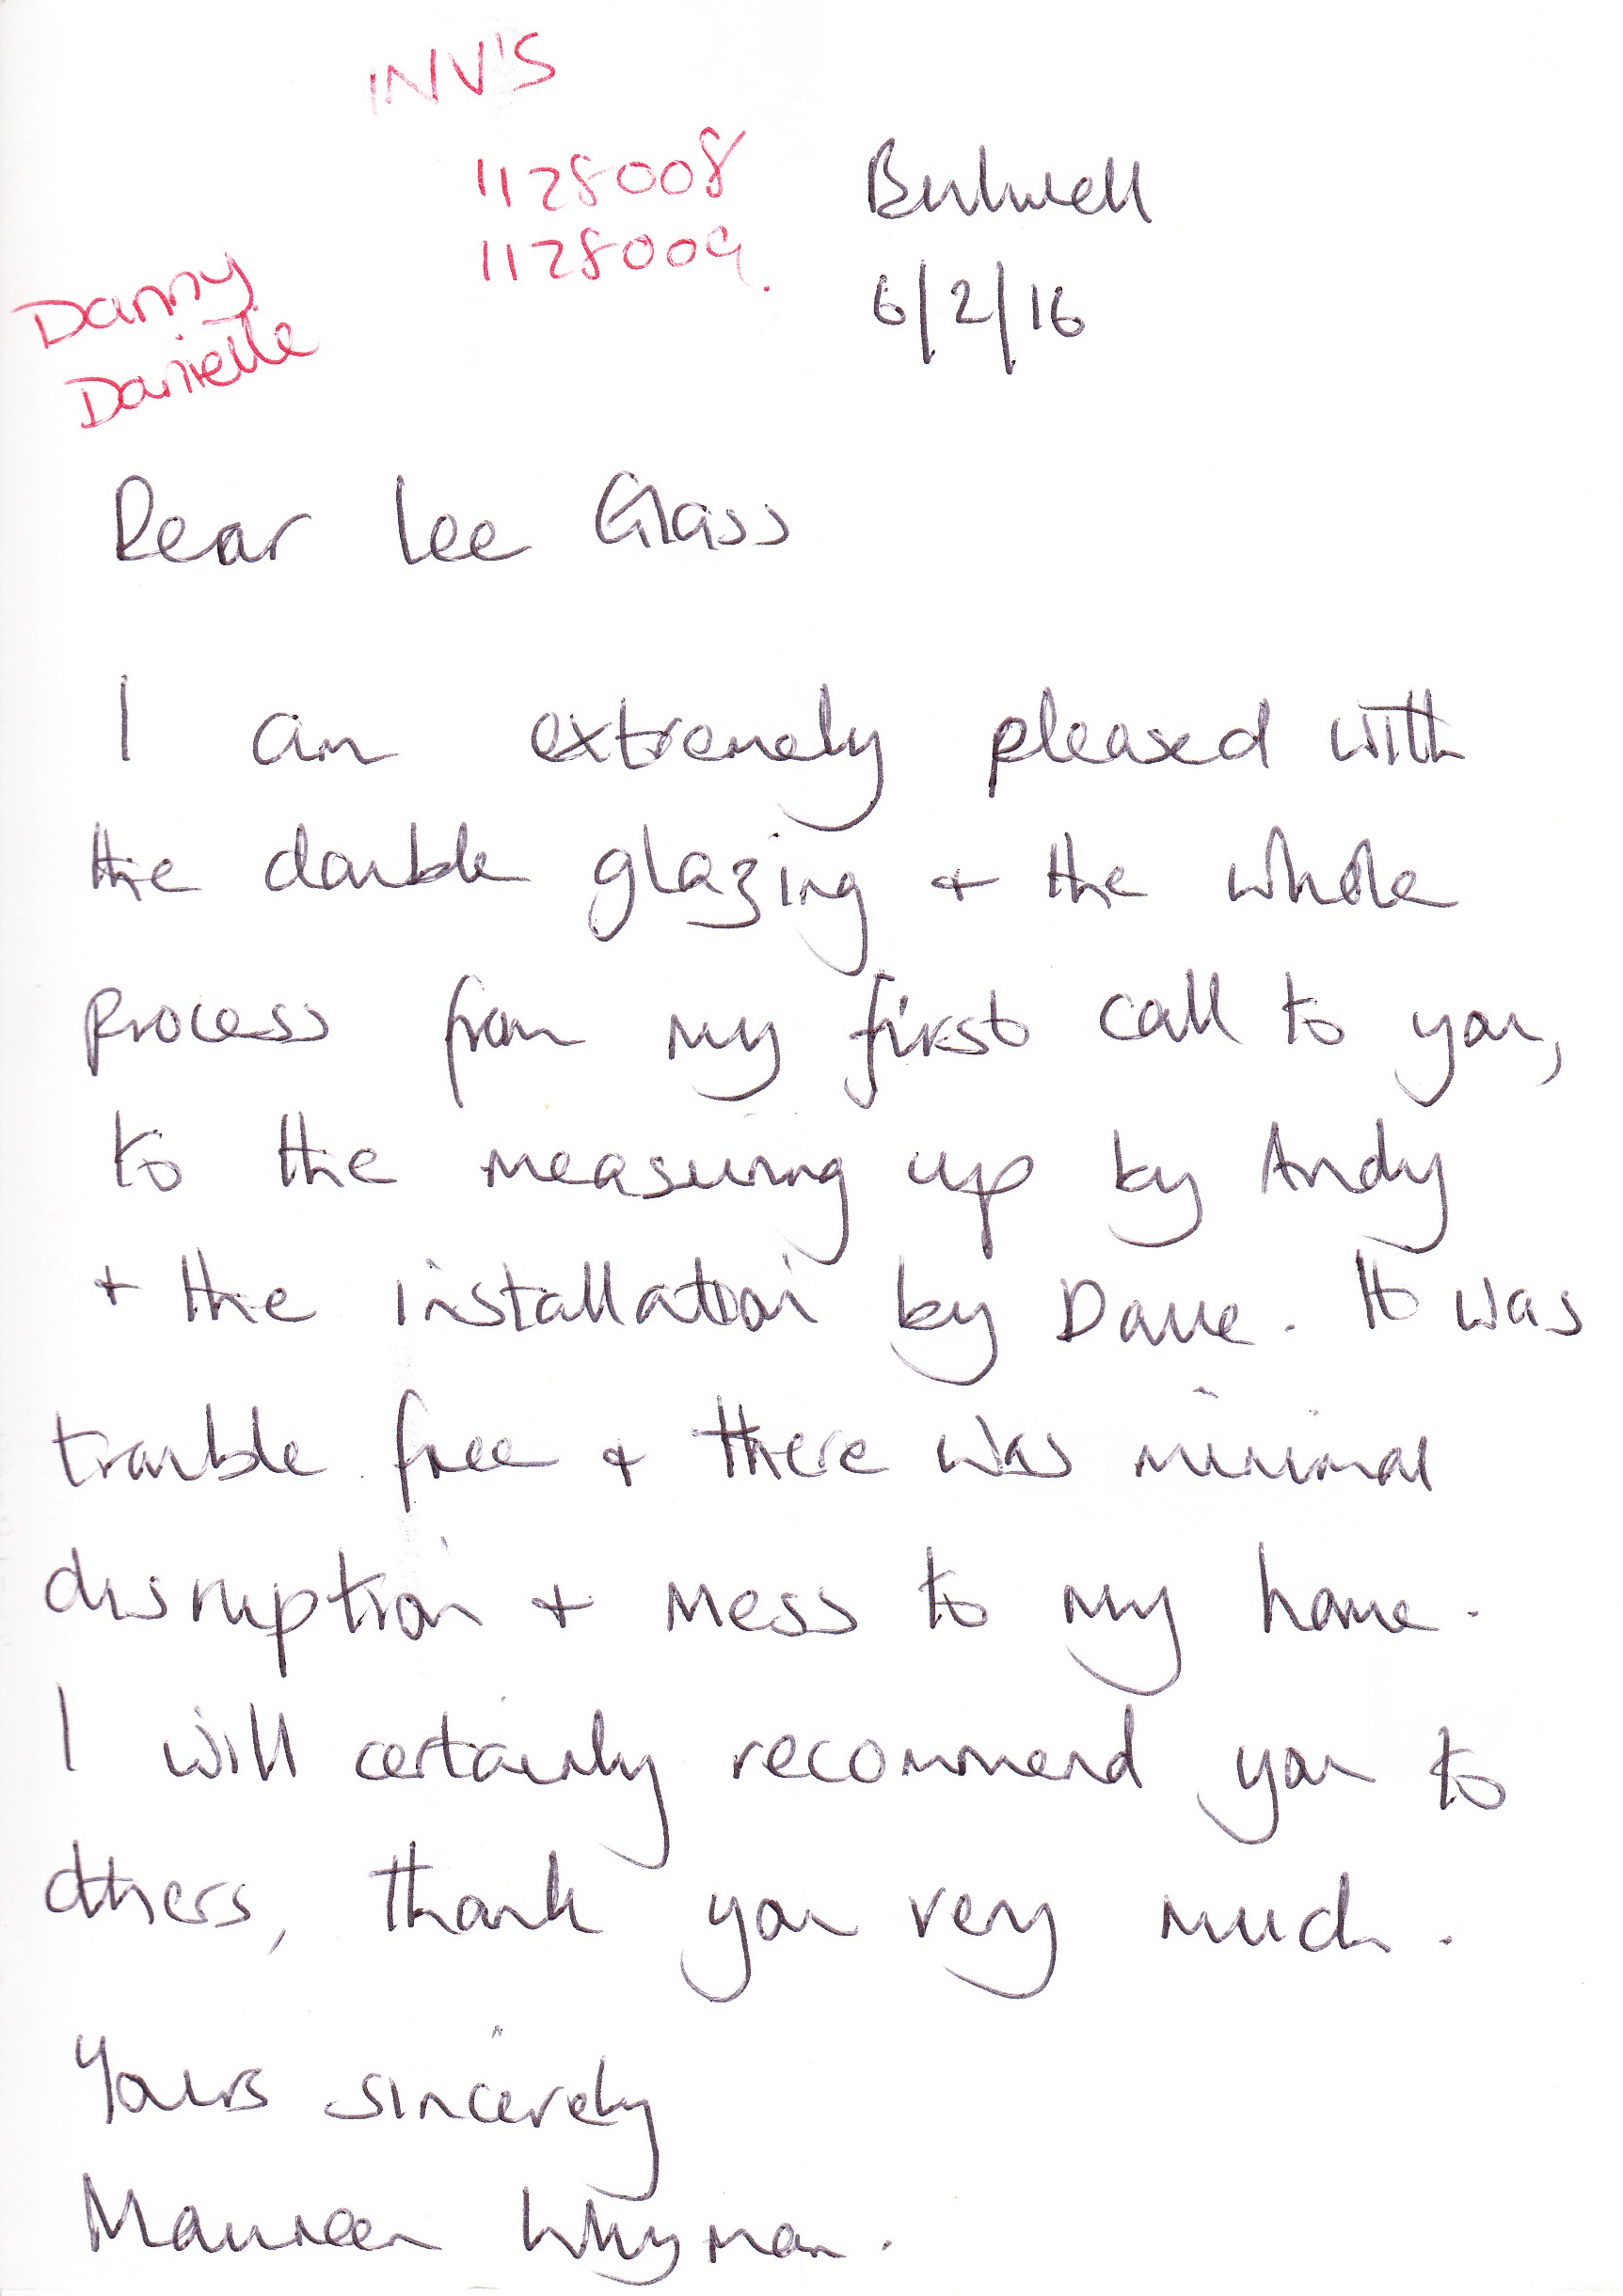 INV'S
1128008
1128009.
Danny
Danielle
Bulwell
6/2/16
Dear Lee Glass
I am extremely pleased with
the double glazing + the whole
process from my first call to you,
to the measuring up by Andy
+ the installation by Dave. It was
trouble free + there was minimal
disruption + mess to my home.
I will certainly recommend you to
others, thank you very much.
Yours sincerely
Maureen Whyman.